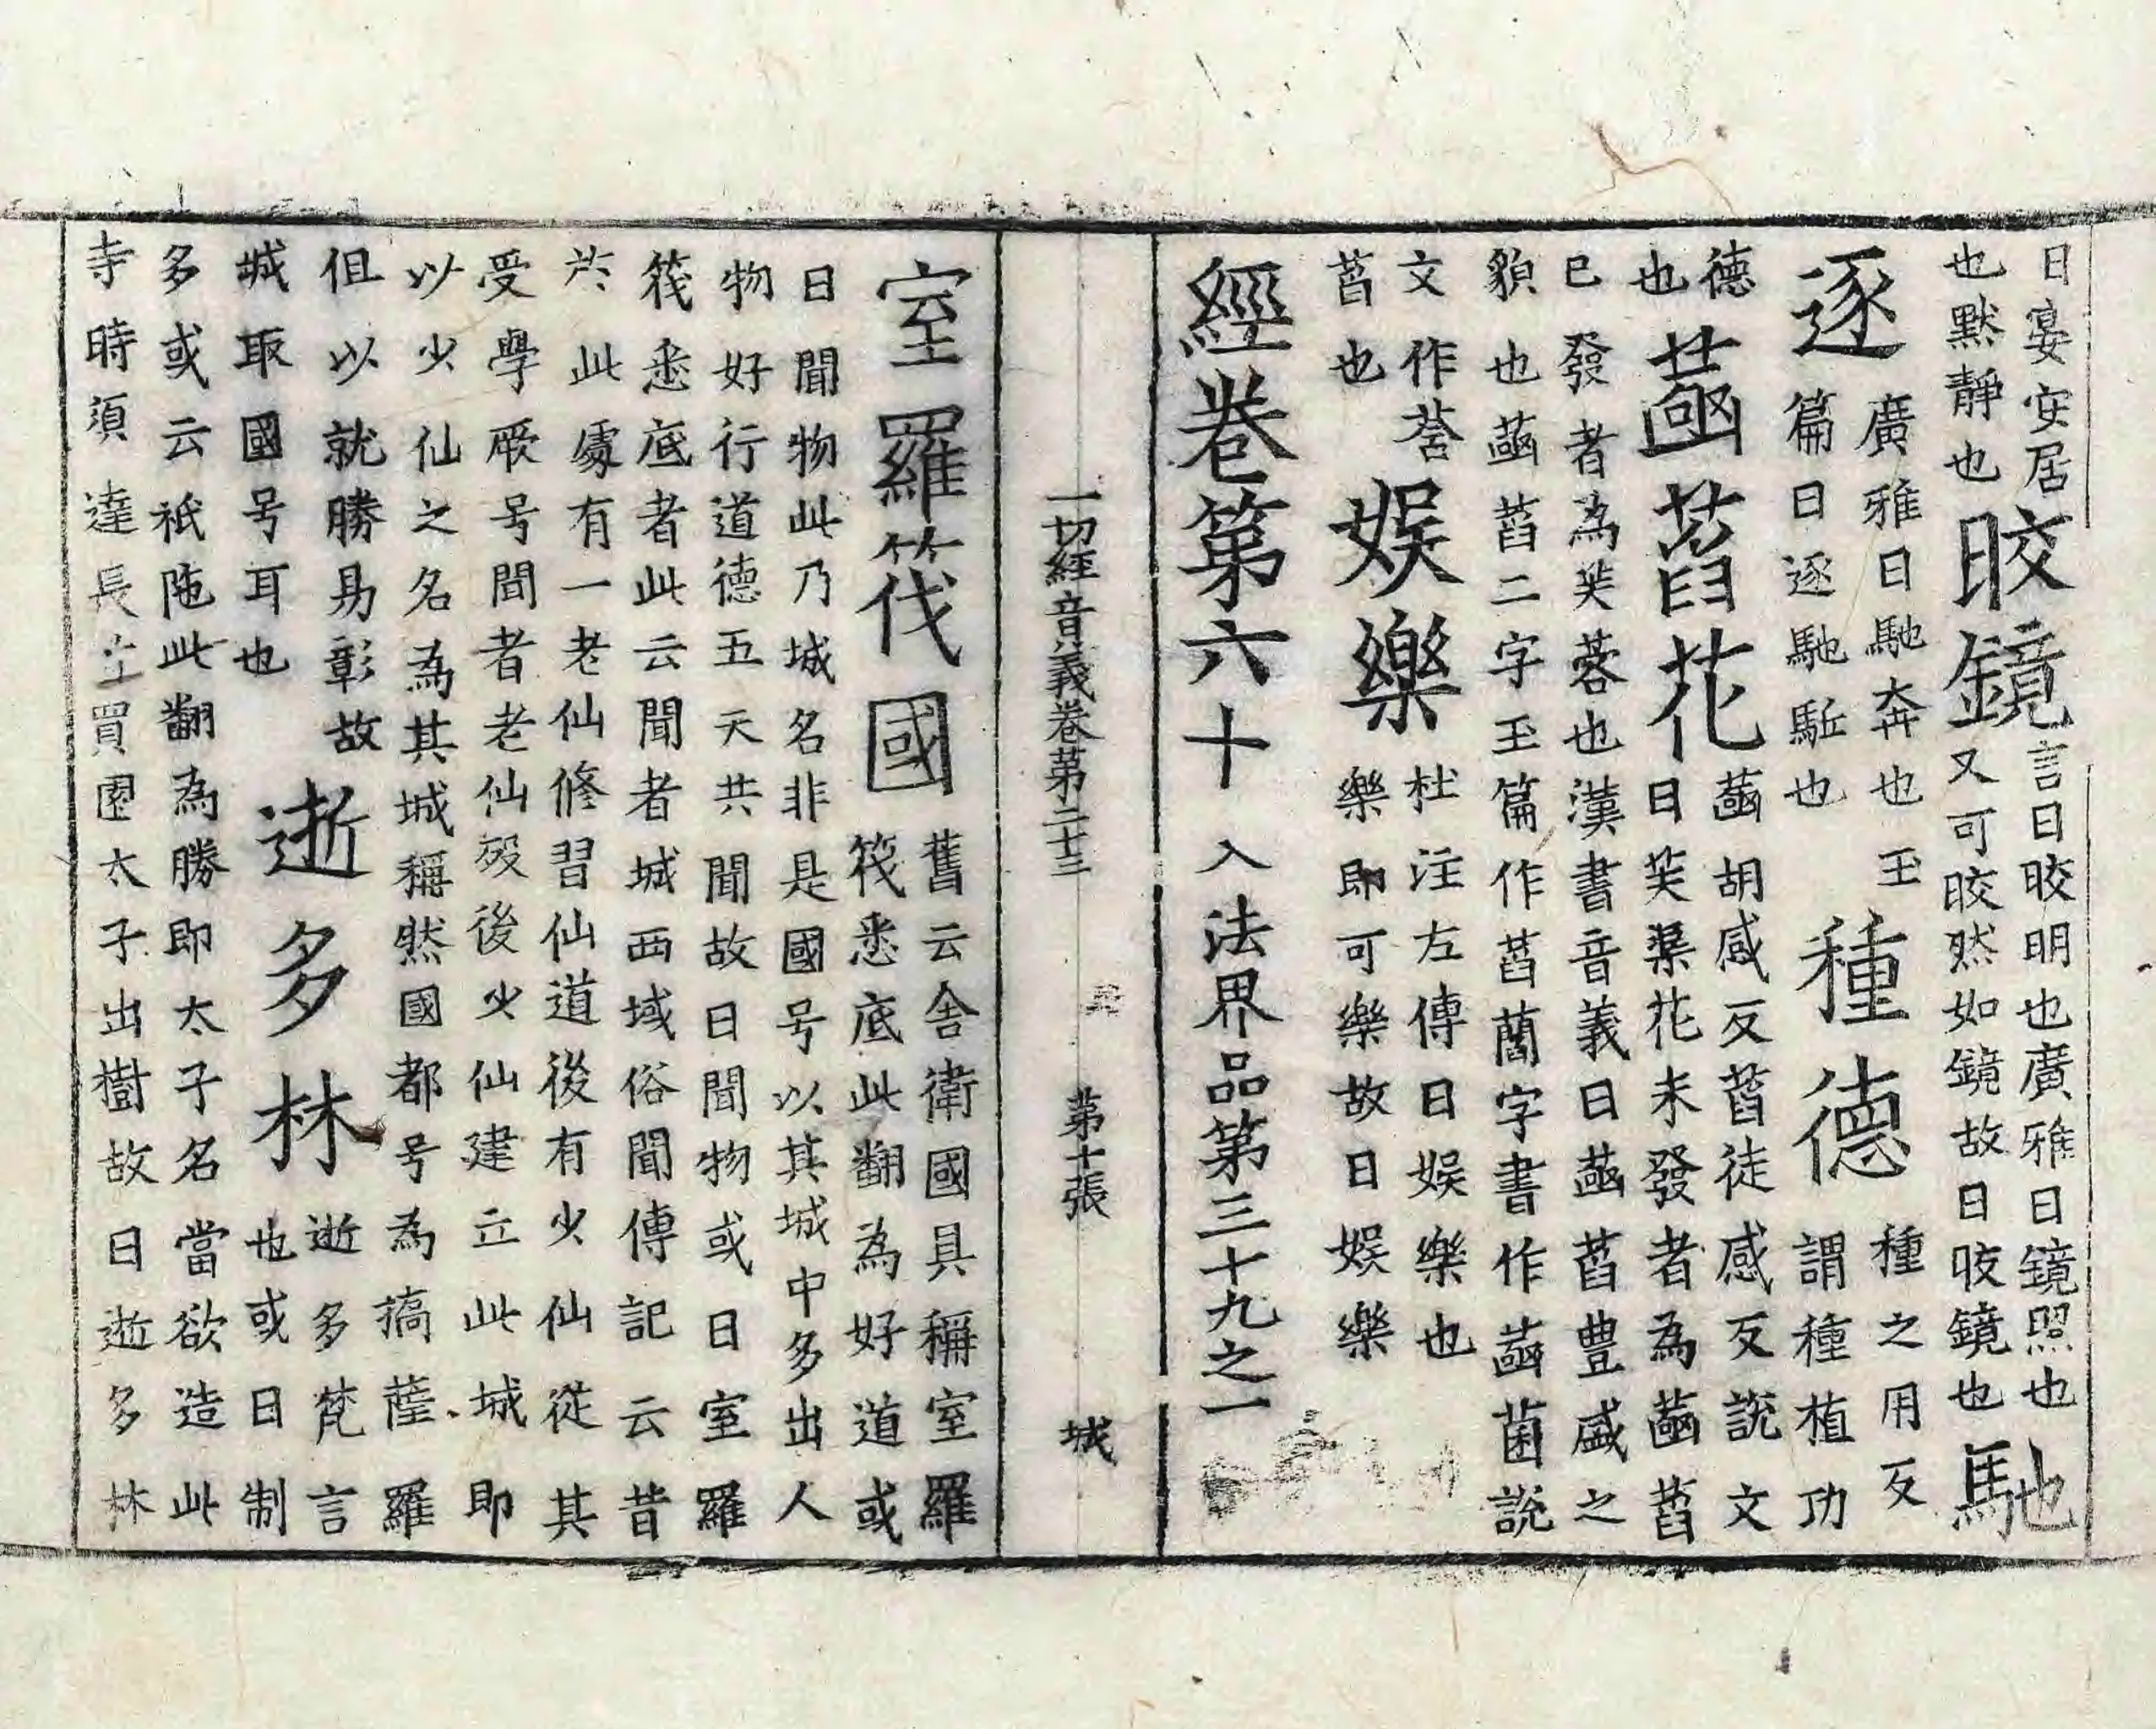 日宴安居也默靜也晈鏡言日晈明也廣雅日鏡照也又可晈然如鏡故日晈鏡也馳
逐廣雅日馳奔也玉篇日逐馳駈也種德種之用反謂種植功
德也菡萏花菡胡感反萏徒感反說文日芙蕖花未發者為菡萏
已發者為芙蓉也漢書音義日菡萏豊盛之
貌也菡萏二字玉篇作萏藺字書作菡菌說
文作莟萏也娛樂杜注左傳日娛樂也樂即可樂故日娛樂
經卷第六十 入法界品第三十九之一
一切經音義卷第二十三 第十張 城
室羅筏國舊云舍衛國具稱室羅筏悉底此翻為好道或
日聞物此乃城名非是國号以其城中多出人
物好行道德五天共聞故日聞物或日室羅
筏悉底者此云聞者城西域俗聞傳記云昔
於此處有一老仙修習仙道後有少仙從其
受學厥号聞者老仙歿後少仙建立此城即
以少仙之名為其城稱然國都号為搞薩羅
但以就勝易彰故城取國号耳也逝多林逝多梵言也或日制
多或云祇陁此翻為勝即太子名當欲造此
寺時須達長者買園太子出樹故日逝多林